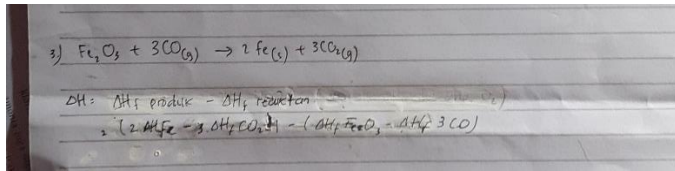 3) Fe₂O₃ + 3CO(g) → 2 Fe(s) + 3CO₂(g)
ΔH = ΔHf produk - ΔHf reaktan
= (2 ΔHfFe - 3 ΔHfCO₂) - (ΔHf Fe₂O₃ - ΔHf 3CO)